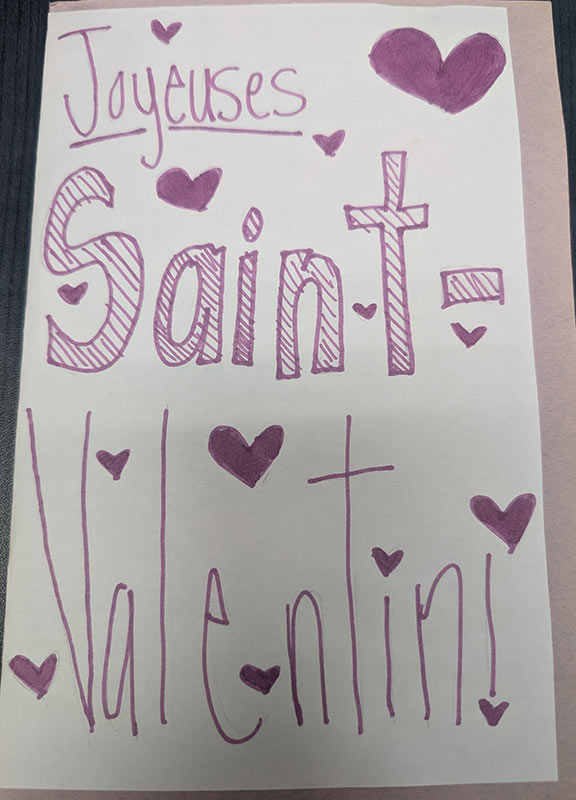 Joyeuses
Saint-
Valentin!